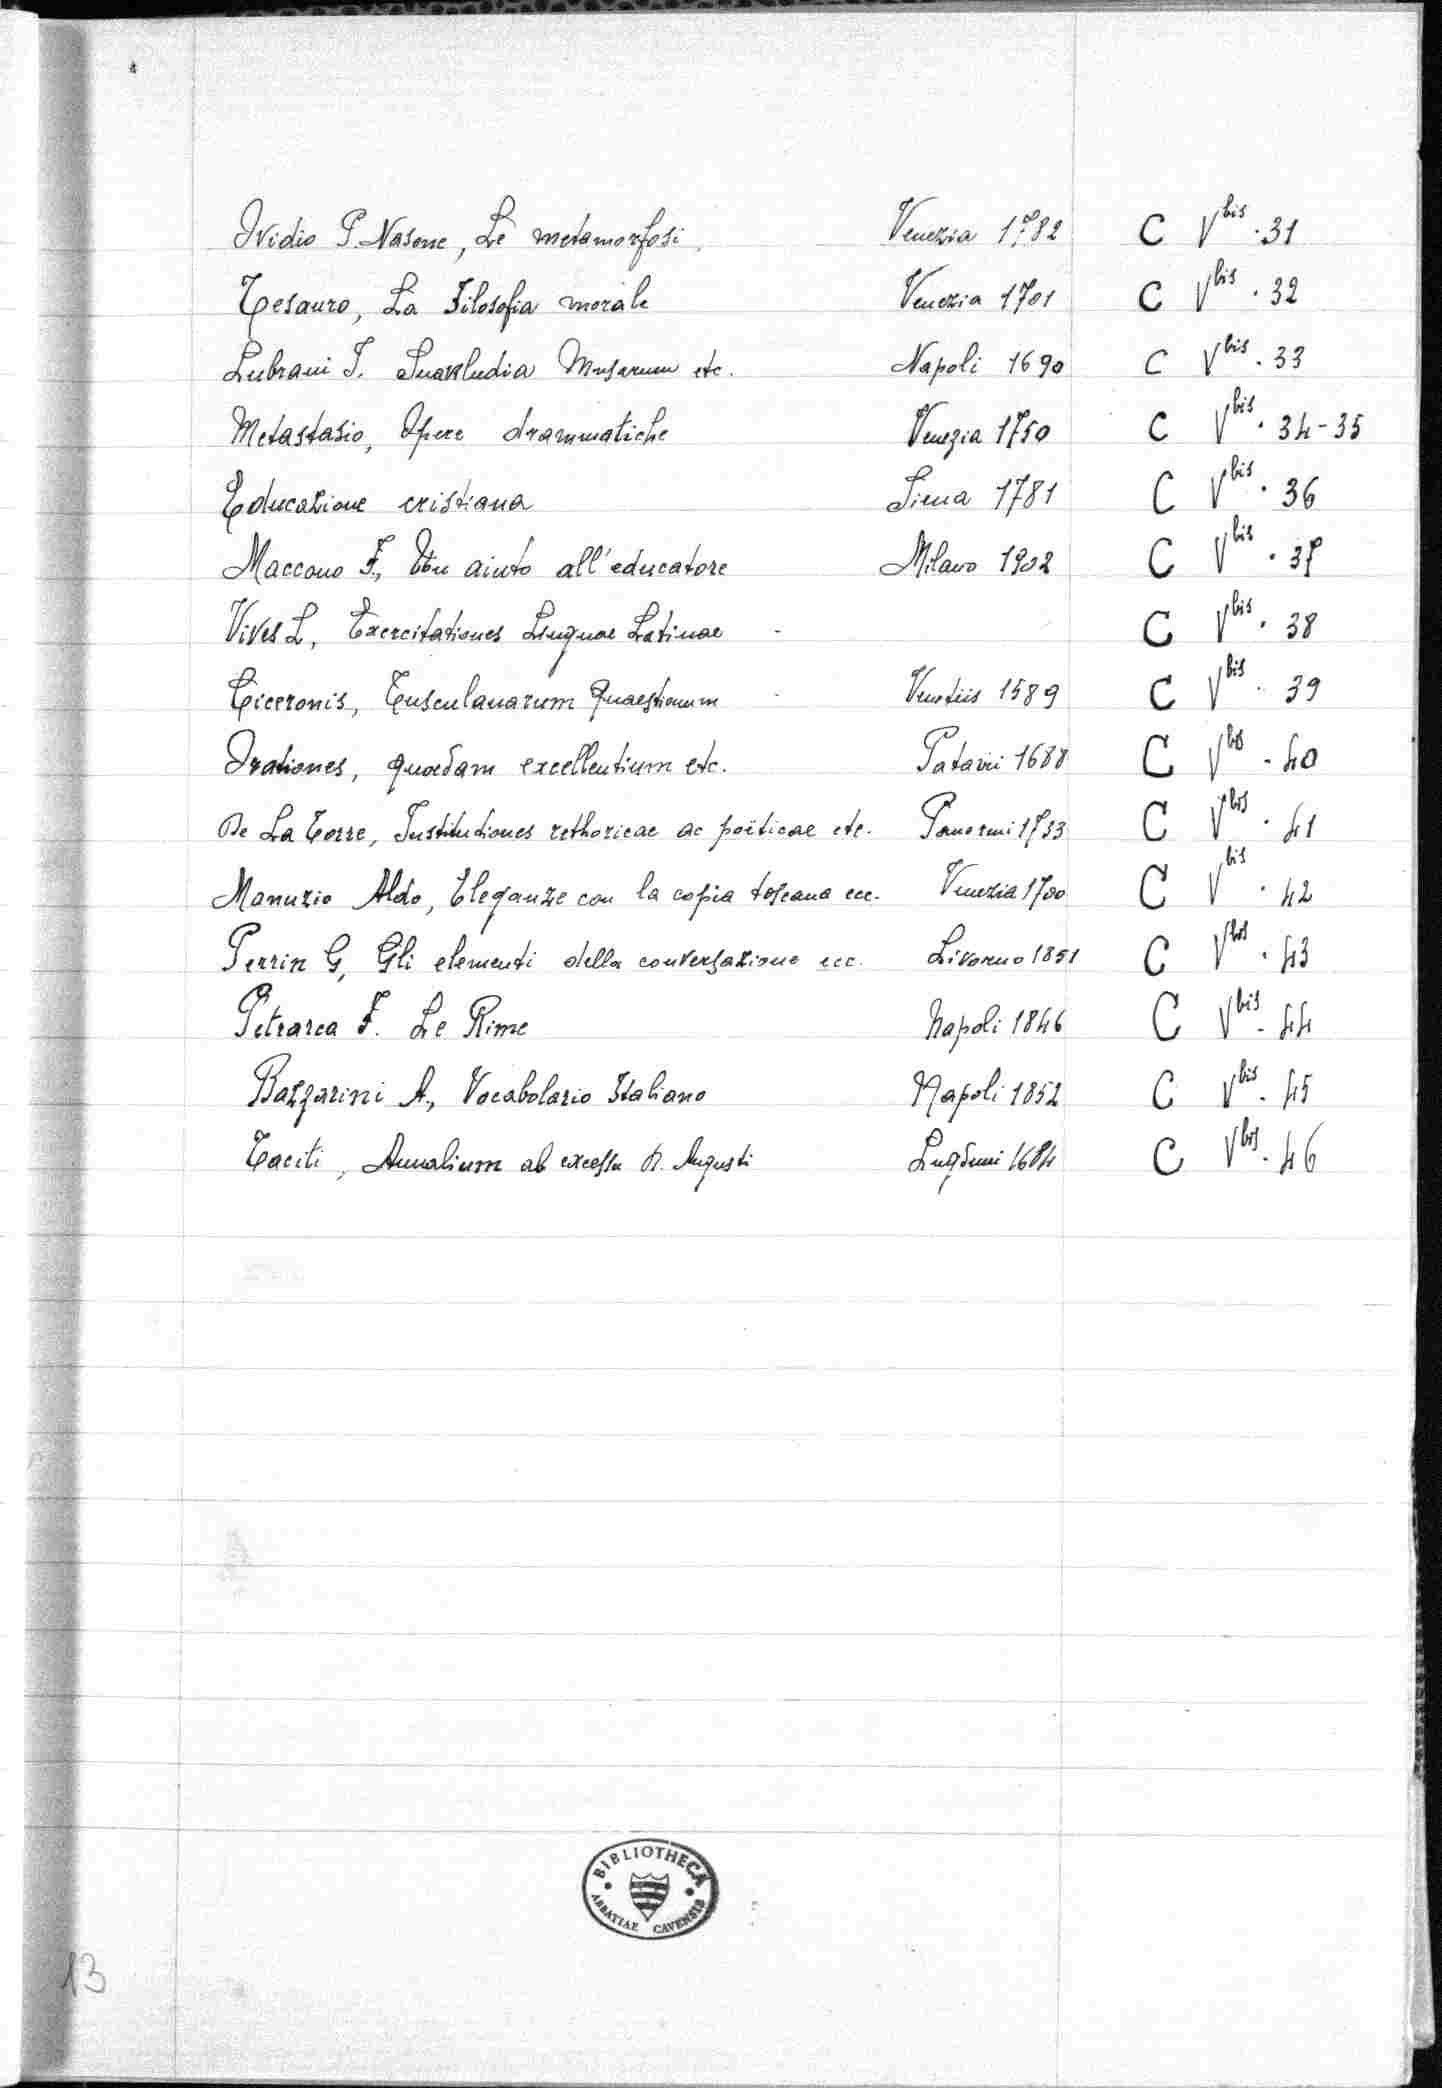 Ovidio P. Nasone, Le metamorfosi Venezia 1782 C V bis . 31
Tesauro, La Filosofia morale Venezia 1701 C V bis . 32
Lubrani I. Suaviludia Musarum etc. Napoli 1690 C V bis . 33
Metastasio, Opere drammatiche Venezia 1750 C V bis . 34-35
Educazione cristiana Siena 1781 C V bis . 36
Maccono F., Un aiuto all'educatore Milano 1902 C V bis . 37
Vives L, Exercitationes Linguae Latinae - C V bis . 38
Ciceronis, Tusculanarum Quaestionum - Venetiis 1589 C V bis . 39
Orationes, quaedam excellentium etc. Patavii 1688 C V bis . 40
De La Torre, Institutiones rethoricae ac poëticae etc. Panormi 1733 C V bis . 41
Manuzio Aldo, Eleganze con la copia toscana ecc. Venezia 1700 C V bis . 42
Perrin G, Gli elementi della conversazione ecc. Livorno 1851 C V bis . 43
Petrarca F. Le Rime Napoli 1846 C V bis . 44
Bazzarini A., Vocabolario Italiano Napoli 1852 C V bis . 45
Taciti, Annalium ab excessu Augusti Lugduni 1684 C V bis . 46
BIBLIOTHECA
ABBATIAE CAVENSIS
13